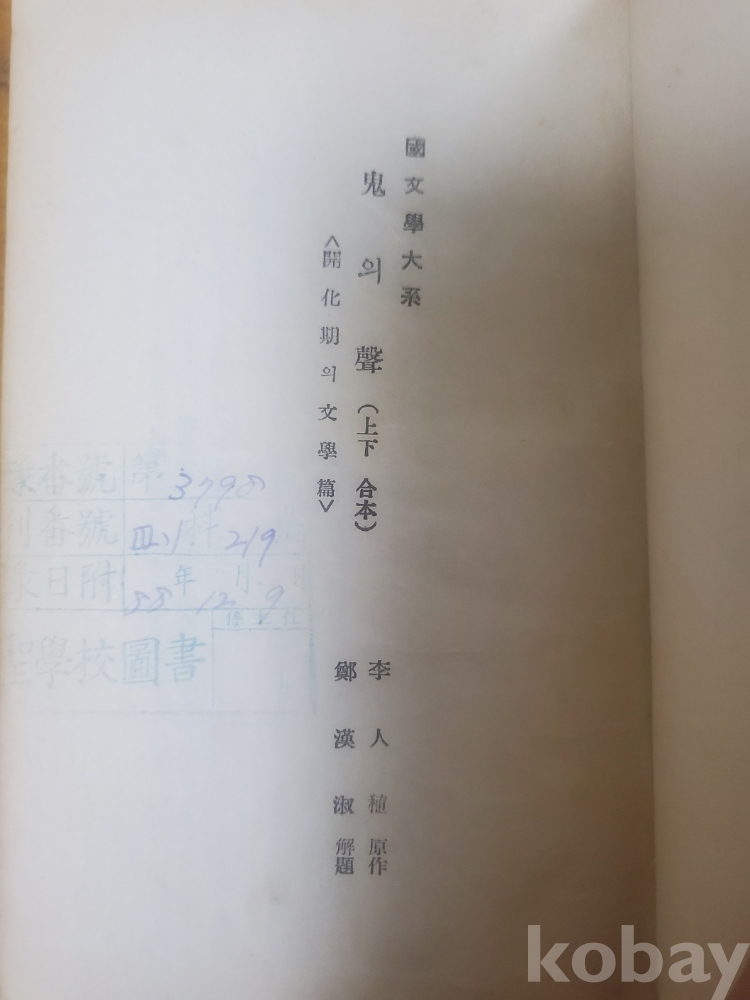 國文學大系
鬼의聲(上下 合本)
<開化期의文學篇>
李人稙 原作
鄭漢淑 解題
番號 第 3798
番號 Ⅲ、1 219
日附 55年 12月 9日
學校圖書
kobay